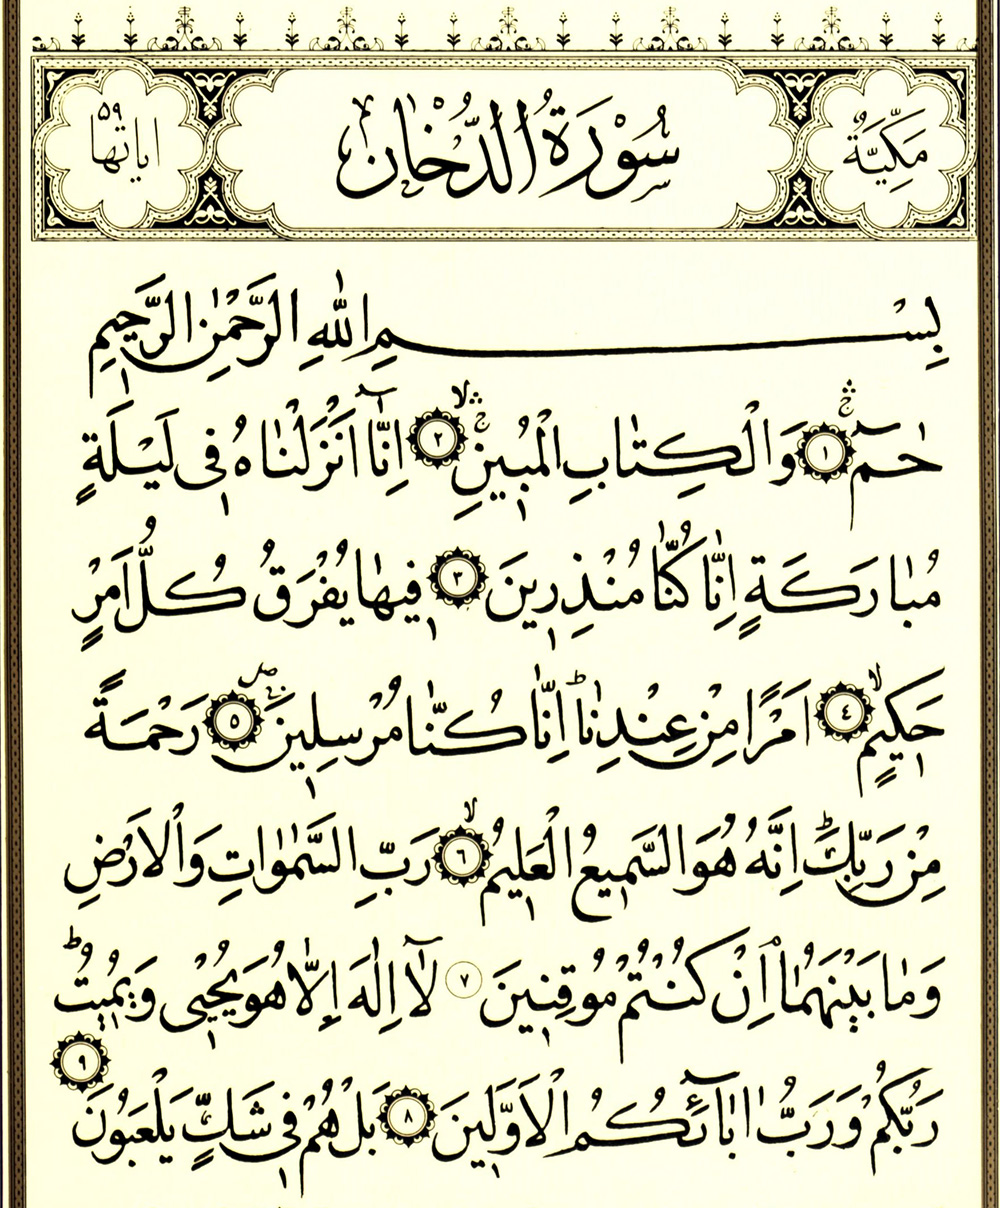 مَكِّيَّةٌ سُوْرَةُ الدُّخَانِ اياتها ٥٩
بِسْمِ اللّٰهِ الرَّحْمٰنِ الرَّحِيمِ
حٰمٓ ١ وَالْكِتَابِ الْمُبِينِۙ ٢ اِنَّٓا اَنْزَلْنَاهُ فِى لَيْلَةٍ
مُبَارَكَةٍ اِنَّا كُنَّا مُنْذِرِينَ ٣ فِيهَا يُفْرَقُ كُلُّ اَمْرٍ
حَكِيمٍۙ ٤ اَمْرًا مِنْ عِنْدِنَاۜ اِنَّا كُنَّا مُرْسِلِينَۚ ٥ رَحْمَةً
مِنْ رَبِّكَۜ اِنَّهُ هُوَ السَّمِيعُ الْعَلِيمُۙ ٦ رَبِّ السَّمٰوَاتِ وَالْاَرْضِ
وَمَا بَيْنَهُمَا اِنْ كُنْتُمْ مُوقِنِينَ ٧ لَٓا اِلٰهَ اِلَّا هُوَ يُحْيِى وَيُمِيتُۜ
رَبُّكُمْ وَرَبُّ اٰبَٓائِكُمُ الْاَوَّلِينَ ٨ بَلْ هُمْ فِى شَكٍّ يَلْعَبُونَ ٩